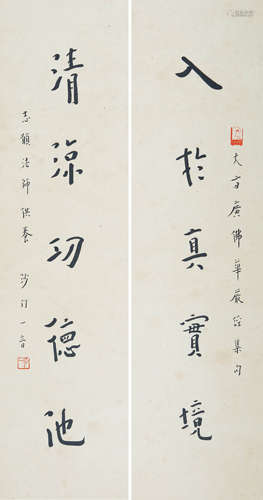 大方广佛華嚴经集句
入於真實境
清涼功德池
志願法師供養 沙门一音